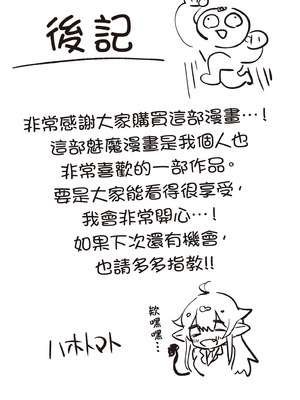 後記
非常感謝大家購買這部漫畫…!
這部魅魔漫畫是我個人也
非常喜歡的一部作品。
要是大家能看得很享受,
我會非常開心…!
如果下次還有機會,
也請多多指教!!
欸嘿嘿…
ハホトマト